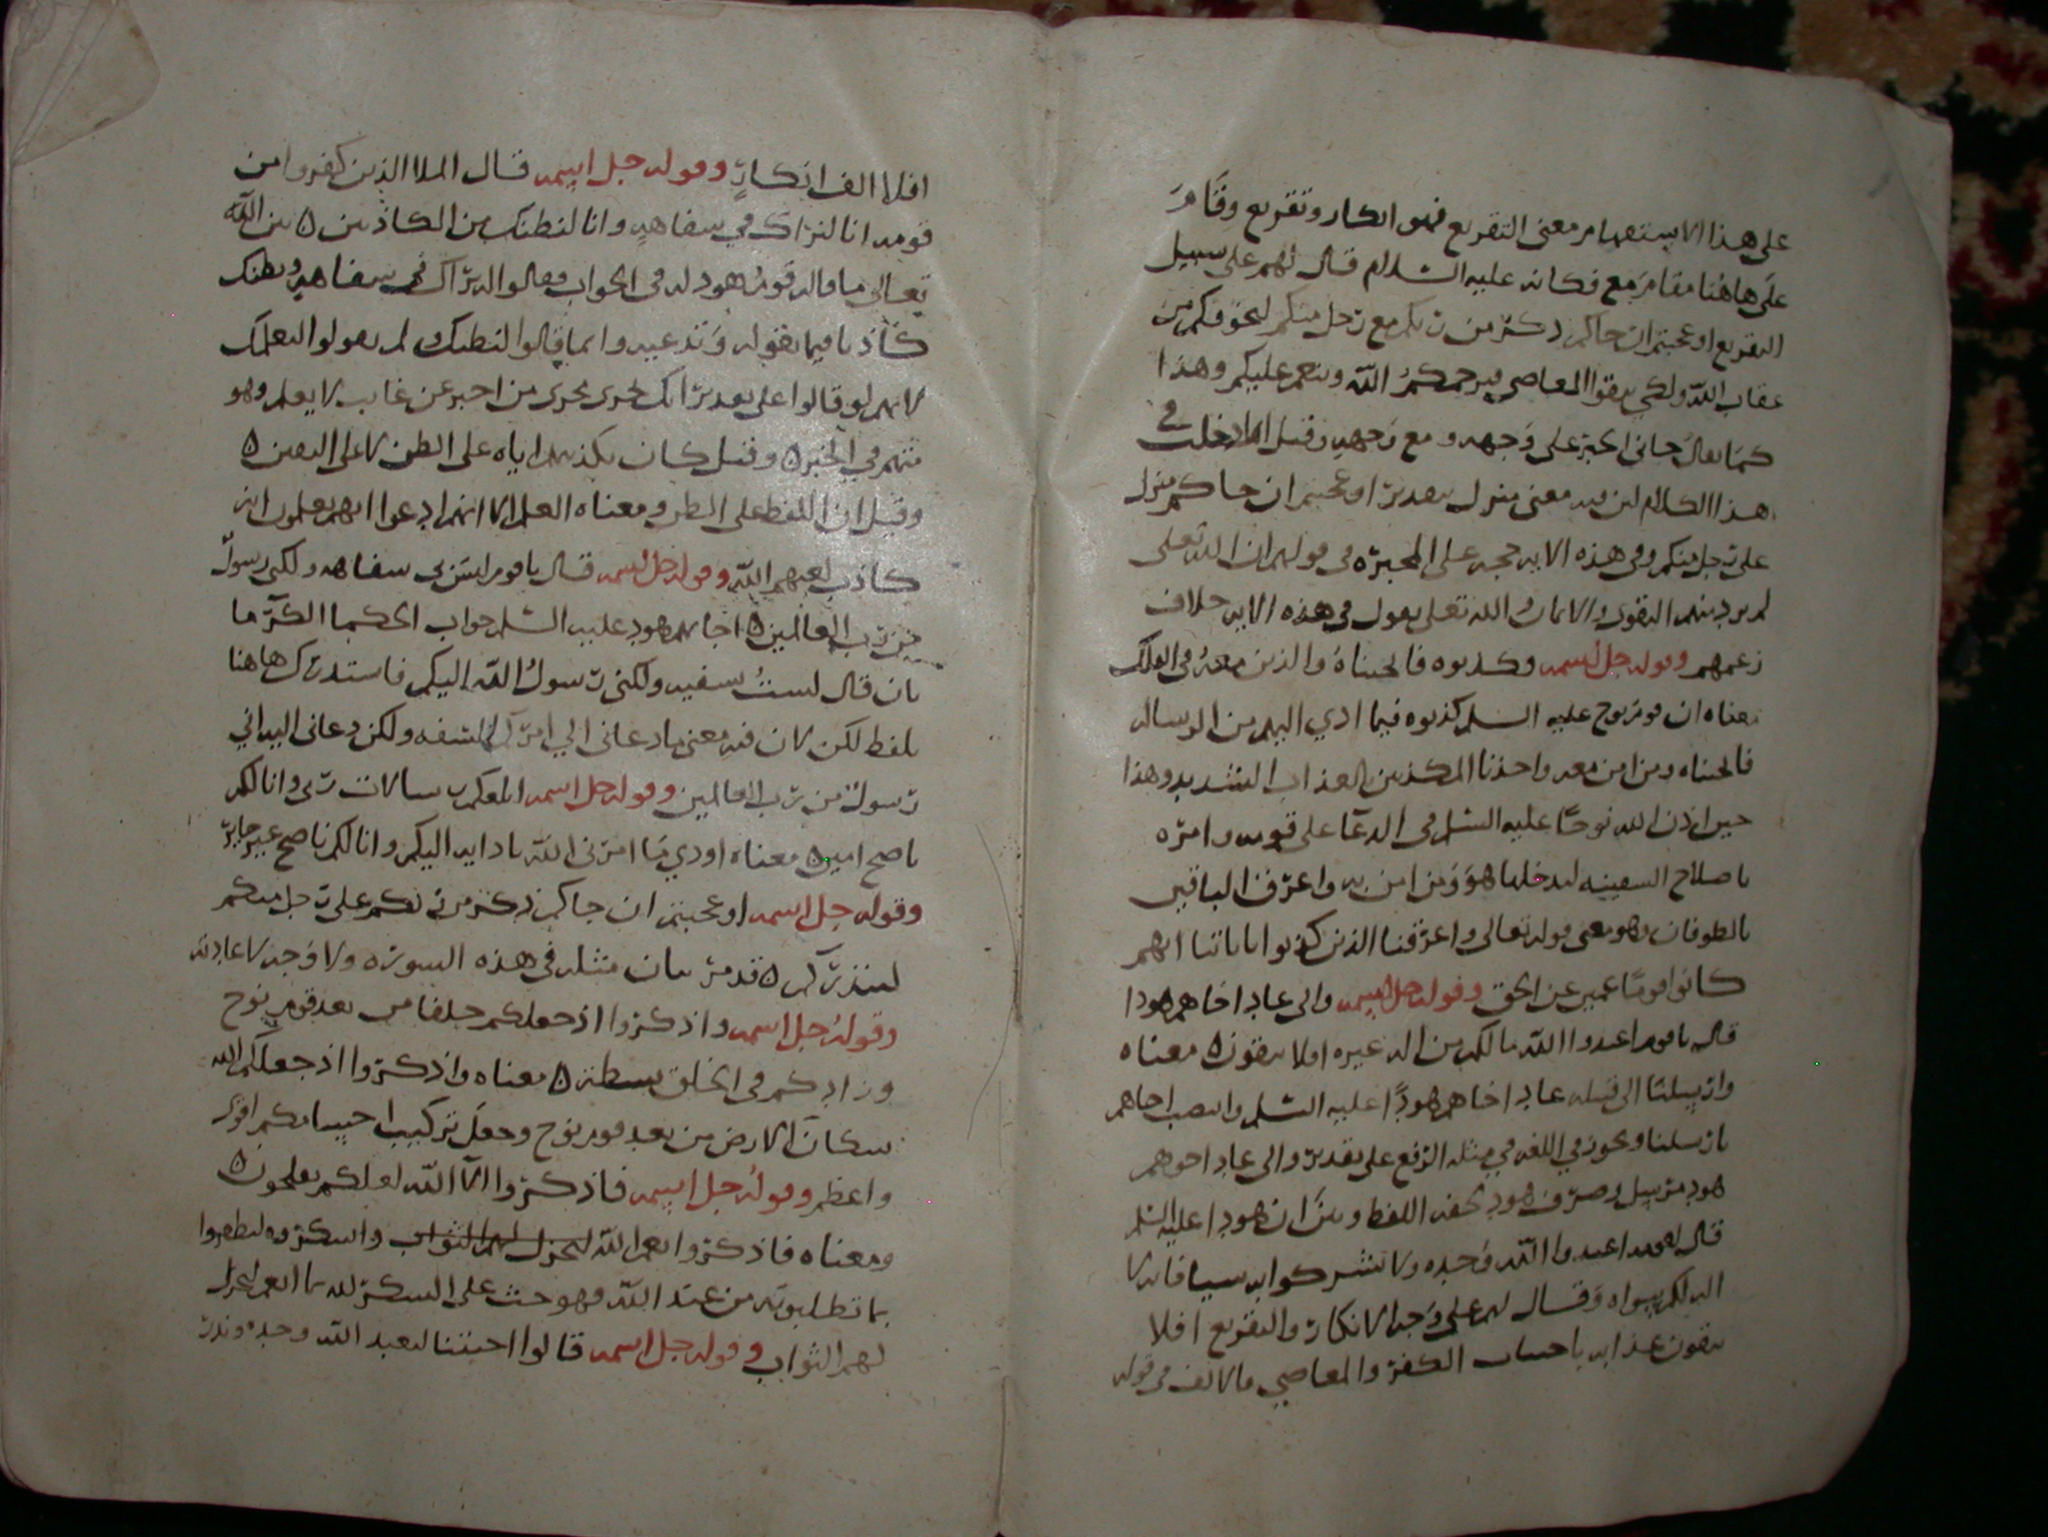 على هذا الاستفهام معنى التقريع فهو انكار وتقريع وقام
على هاهنا مقام مع فكانه عليه السلام قال لهم على سبيل
التقريع او عجبتم ان جاكم ذكر من ربكم مع رجل منكم ليخوفكم من
عقاب الله ولكي يتقوا المعاصي فيرحمكم الله وينعم عليكم وهذا
كما يقال جاني الخبر على وجهه ومع وجهه وقيل انما دخلت في
هذا الكلام لان فيه معنى منزل بتقدير او عجبتم ان جاكم منزل
على رجل منكم وفي هذه الايه حجه على المجبره في قولهم ان الله تعلى
لم يرد منهم التقوى والايمان والله تعلى يقول في هذه الايه خلاف
زعمهم وقوله جل اسمه وكذبوه فانجيناه والذين معه في الفلك
معناه ان قوم نوح عليه السلم كذبوه فيما ادي اليهم من الرساله
فانجيناه ومن امن معه واخذنا المكذبين بالعذاب الشديد وهذا
حين اذن الله نوحًا عليه السلم في الدعا على قومه وامره
باصلاح السفينه ليدخلها هو ومن امن به واغرق الباقين
بالطوفان وهو معنى قوله تعالى واغرقنا الذين كذبوا باياتنا انهم
كانوا قومًا عمين عن الحق وقوله جل اسمه والى عاد اخاهم هودا
قال ياقوم اعبدوا الله مالكم من اله غيره افلا تتقون ه معناه
وارسلنا الى قبيله عاد اخاهم هودًا عليه السلم وانتصب اخاهم
بارسلنا ويجوز في اللغه في مثله الرفع على تقدير والى عاد اخوهم
هود مرسل وصرف هود لخفه اللفظ وبين ان هودا عليه السلم
قال لقومه اعبدوا الله وحده ولا تشركوا به شيا فانه لا
اله لكم سواه وقال لهم على وجه الانكار والتقريع افلا
تتقون عذابه باجتناب الكفر والمعاصي فالالف في قوله
افلا الف انكارٍ وقوله جل اسمه قال الملا الذين كفروا من
قومه انا لنراك في سفاهةٍ وانا لنظنك من الكاذبين ه بين الله
تعالى ما قاله قوم هود له في الجواب فقالوا له نراك في سفاهةٍ ونظنك
كاذبا فيما تقوله وتدعيه وانما قالوا لنظنك ولم يقولوا لنعلمك
لانهم لو قالوا على تقدير انك تجرى مجرى من اخبر عن غايب لا يعلم وهو
متهم في الخبر ه وقيل كان تكذيبهم اياه على الظن لا على اليقين ه
وقيل ان اللفظ على الظن ومعناه العلم الا انهم ادعوا انهم يعلمون انه
كاذب لعنهم الله وقوله جل اسمه قال ياقوم ليس بي سفاهه ولكني رسول
من رب العالمين ه اجابهم هود عليه السلم جواب الحكما الكرما
بان قال لست سفيه ولكني رسول الله اليكم فاستدرك هاهنا
بلفظ لكن لان فيه معنى ما دعاني الى امركم السفه ولكن دعاني اليه اني
رسول من رب العالمين وقوله جل اسمه ابلغكم رسالات ربى وانا لكم
ناصح امين ه معناه اودي ما امرني الله بادايه اليكم وانا لكم ناصح غير جاير
وقوله جل اسمه او عجبتم ان جاكم ذكر من ربكم على رجل منكم
لينذركم ه قد مر بيان مثله في هذه السوره ولا وجه لاعادته
وقوله جل اسمه واذكروا اذ جعلكم خلفا من بعد قوم نوح
وزادكم في الخلق بسطه ه معناه واذكروا اذ جعلكم الله
سكان الارض من بعد قوم نوح وجعل تركيب اجسامكم اقوى
واعظم وقوله جل اسمه فاذكروا الآ الله لعلكم تفلحون ه
ومعناه فاذكروا نعم الله ليجزل لهم الثواب واشكروه لتظفروا
بما تطلبونه من عند الله وهو حث على الشكر لله بما انعم ليجزل
لهم الثواب وقوله جل اسمه قالوا اجيتنا لنعبد الله وحده ونذر